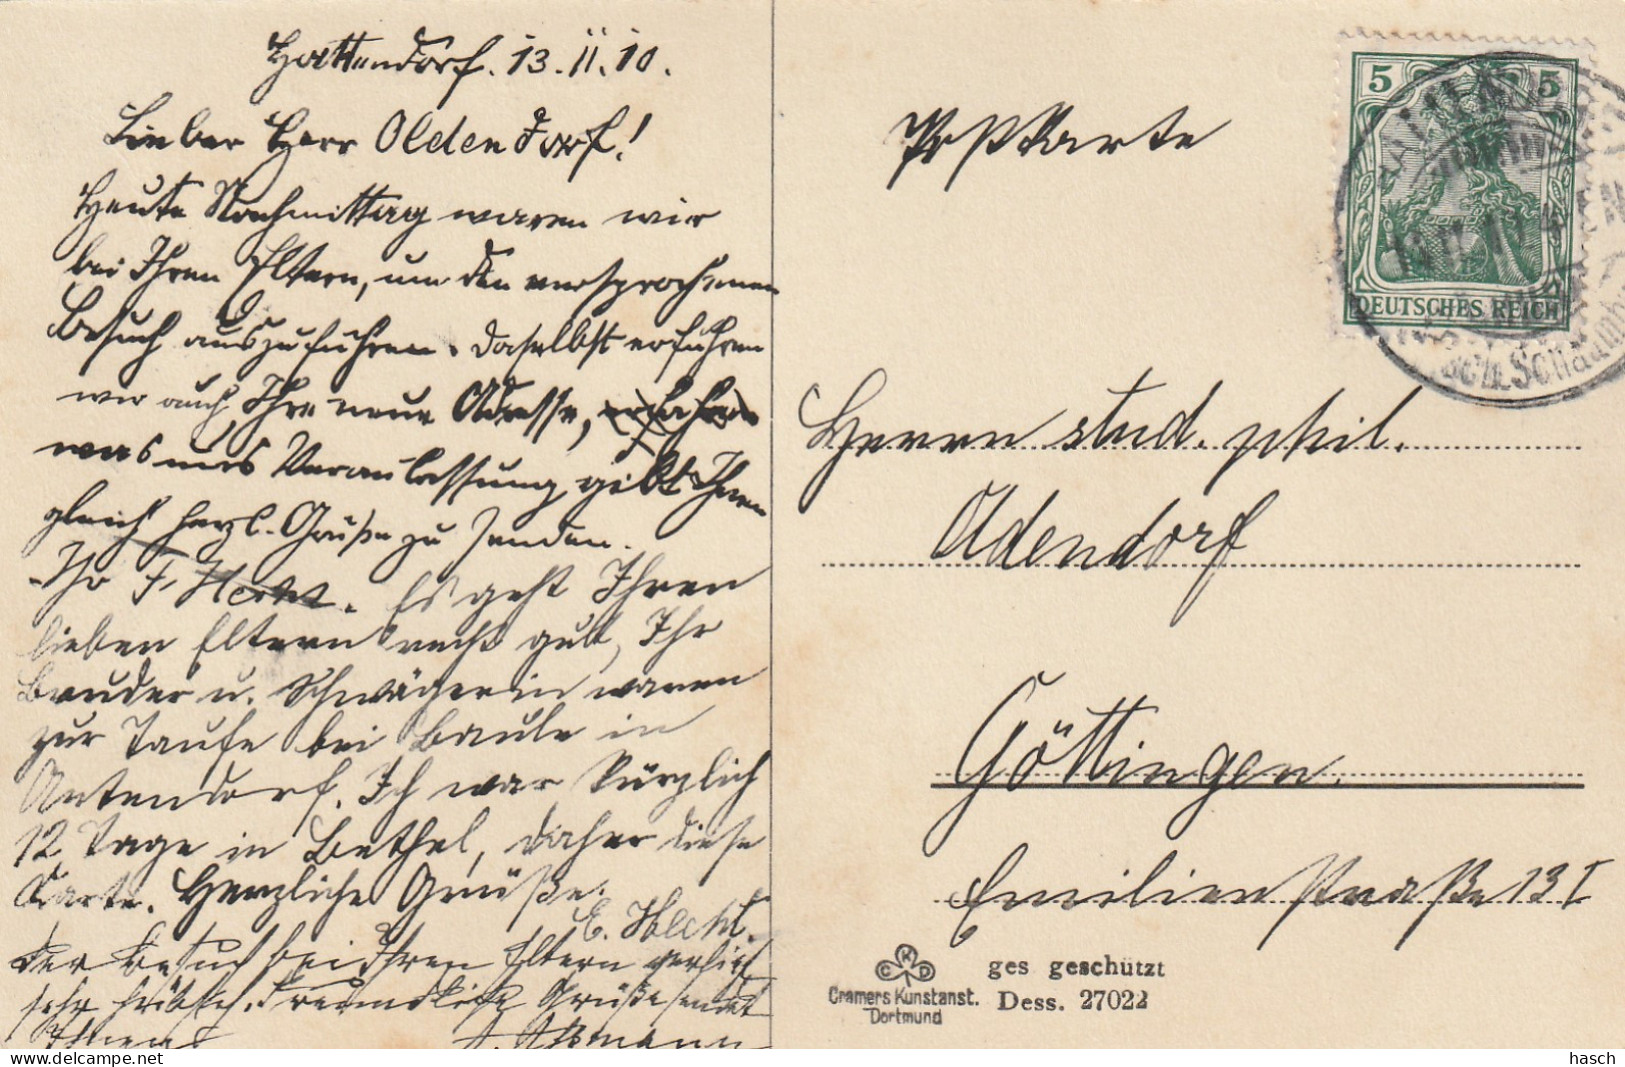 Hattendorf. 13.11.10.
Lieber Herr Oldendorf!
Heute Nachmittag waren wir
bei Ihren Eltern, um den versprochenen
Besuch auszuführen. Daselbst erfuhren
wir auch Ihre neue Adresse,
was uns Veranlassung gibt Ihnen
gleich herzl. Grüße zu senden.
Ihr F. Es geht Ihren
lieben Eltern recht gut, Ihr
Bruder u. Schwägerin waren
zur Taufe bei Baule in
Antendorf. Ich war kürzlich
12 Tage in Bethel, daher diese
Karte. Herzliche Grüße.
E. Hecht.
Der Besuch bei Ihren Eltern verlief
sehr hübsch. Freundliche Grüße sendet
Ihnen Aßmann
Postkarte
5 5
DEUTSCHES REICH
Herrn stud. phil.
Oldendorf
Göttingen.
Emilienstraße 13 I
CKD
Cramers Kunstanst.
Dortmund
ges geschützt
Dess. 27022
hasch